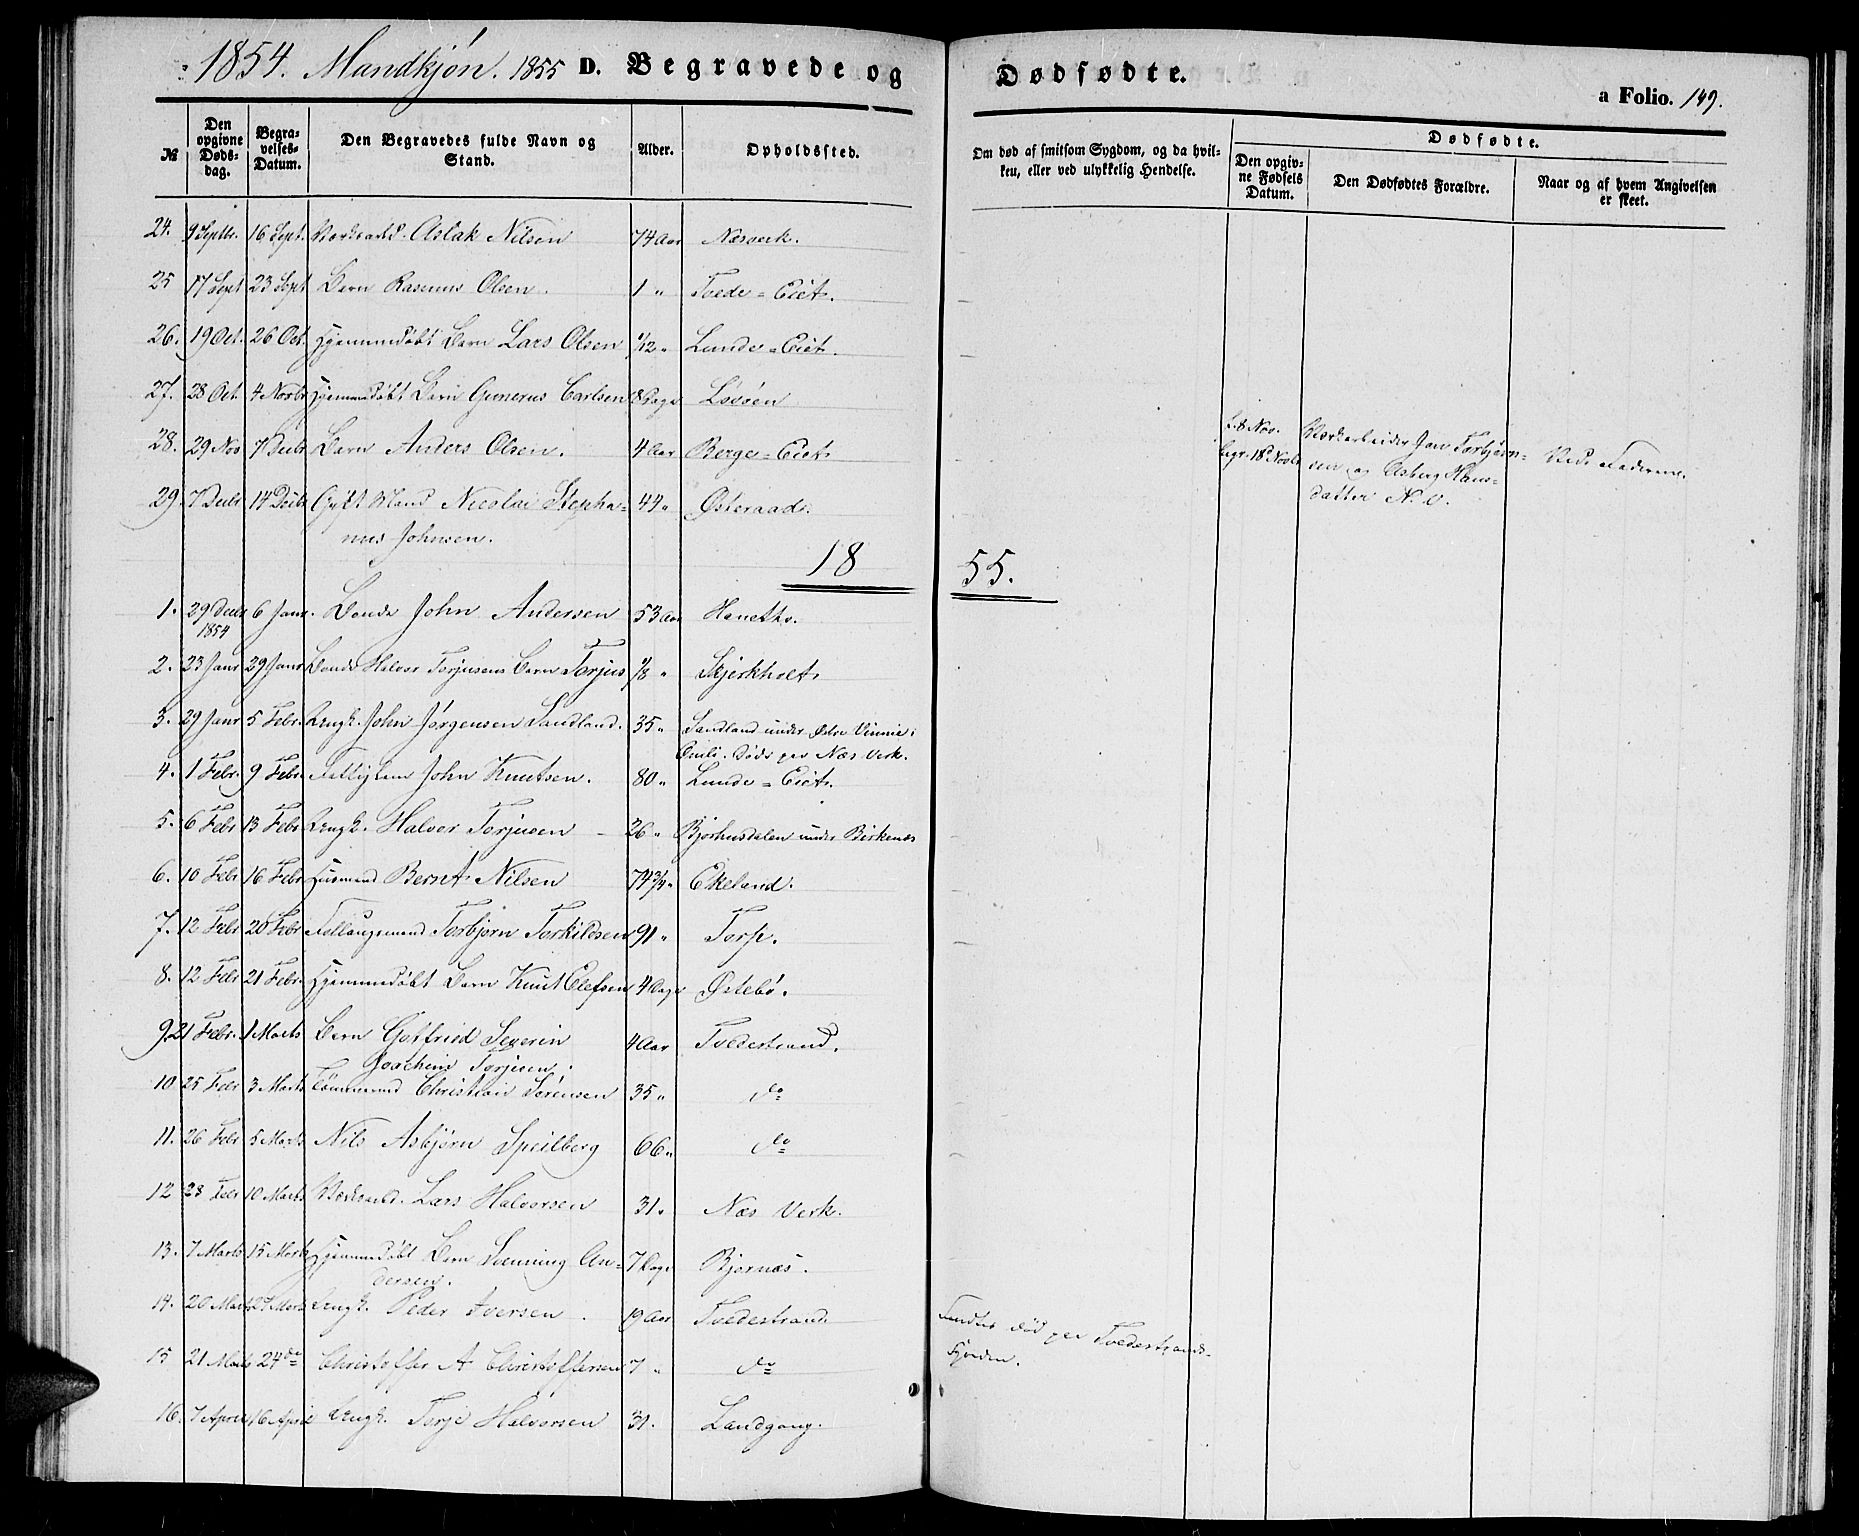 1854. Mandkjön. 1855 D. Begravede og Dødfødte.
a Folio. 149.
№
Den opgivne Dødsdag.
Begravelses-Datum.
Den Begravedes fulde Navn og Stand.
Alder.
Opholdssted.
Om død af smitsom Sygdom, og da hvilken, eller ved ulykkelig Hendelse.
Dødfødte.
Den opgivne Fødsels Datum.
Den Dødfødtes Forældre.
Naar og af hvem Angivelsen er skeet.
24. 9 Septbr. 16 Sept. Værksarbd. Aslak Nilsen 74 Aar Næsverk.
25 17 Sept 23 Sept Barn Rasmus Olsen. 1 " Tvede-Eiet.
26. 19 Oct. 26 Oct. Hjemmedöbt Barn Lars Olsen 1/12 " Lunde-Eiet.
27. 28 Oct. 4 Novbr Hjemmedöbt Barn Gunerus Carlsen 8 Dage Lövöen
28. 29 Nov 7 Decbr Barn Anders Olsen. 4 Aar Berge-Eiet
f. 8 Nov. begr. 18 Novbr
Værkarbeider Jan Torbjørn-
sen og Asberg Hans-
datter N. V.
Ved Faderen.
29. 7 Decbr 14 Decbr Gift Mand Nicolai Stepha-
nus Johnsen. 44 " Østeraad.
1855.
1. 29 Decbr 1854 6 Janr. Bonde John Andersen 53 Aar Hanetho.
2. 23 Janr 29 Janr Bonde Halvor Torjusens Barn Torjus 1/8 " Skjerkholt
3. 29 Janr 5 Febr. Ungk. John Jörgensen Sandland. 35 " Sandland under Østre Vimme i
Omli. Döde paa Næs Verk.
4. 1 Febr. 9 Febr. Fattiglem John Knutsen. 80 " Lunde-Eiet.
5. 6 Febr 13 Febr Ungk. Halvor Torjusen 26 " Bjorhusdalen under Birkenæs
6. 10 Febr 16 Febr Husmand Bernt Nilsen 74 3/4 " Ekeland.
7. 12 Febr 20 Febr Follaugsmand Torbjørn Torkildsen 91 " Torp.
8. 12 Febr 21 Febr. Hjemmedöbt Barn Knut Olefsen 4 Dage Østebö.
9. 21 Febr. 1 Marts Barn Gotfried Severin
Joachim Torjusen. 4 Aar Tvedestrand.
10 25 Febr 3 Marts Tömmermd Christian Sörensen 35 " do
11. 26 Febr 5 Marts Nils Asbjørn Speilberg 66 " do
12 28 Febr 10 Marts Værksarbd. Lars Halvorsen 31 " Næs Verk.
13. 7 Marts 15 Marts Hjemmedöbt Barn Svenning An-
dersen. 7 Dage Bjornæs.
14. 20 Marts 27 Marts Ungk. Peder Iversen. 19 Aar Tvedestrand
Fundet död paa Tvedestrands-
Fjorden.
15 21 Marts 24 do Christoffer A Christoffersen 7 " do
16. 7 April 16 April Ungk. Torje Halvorsen 31. Landgang.